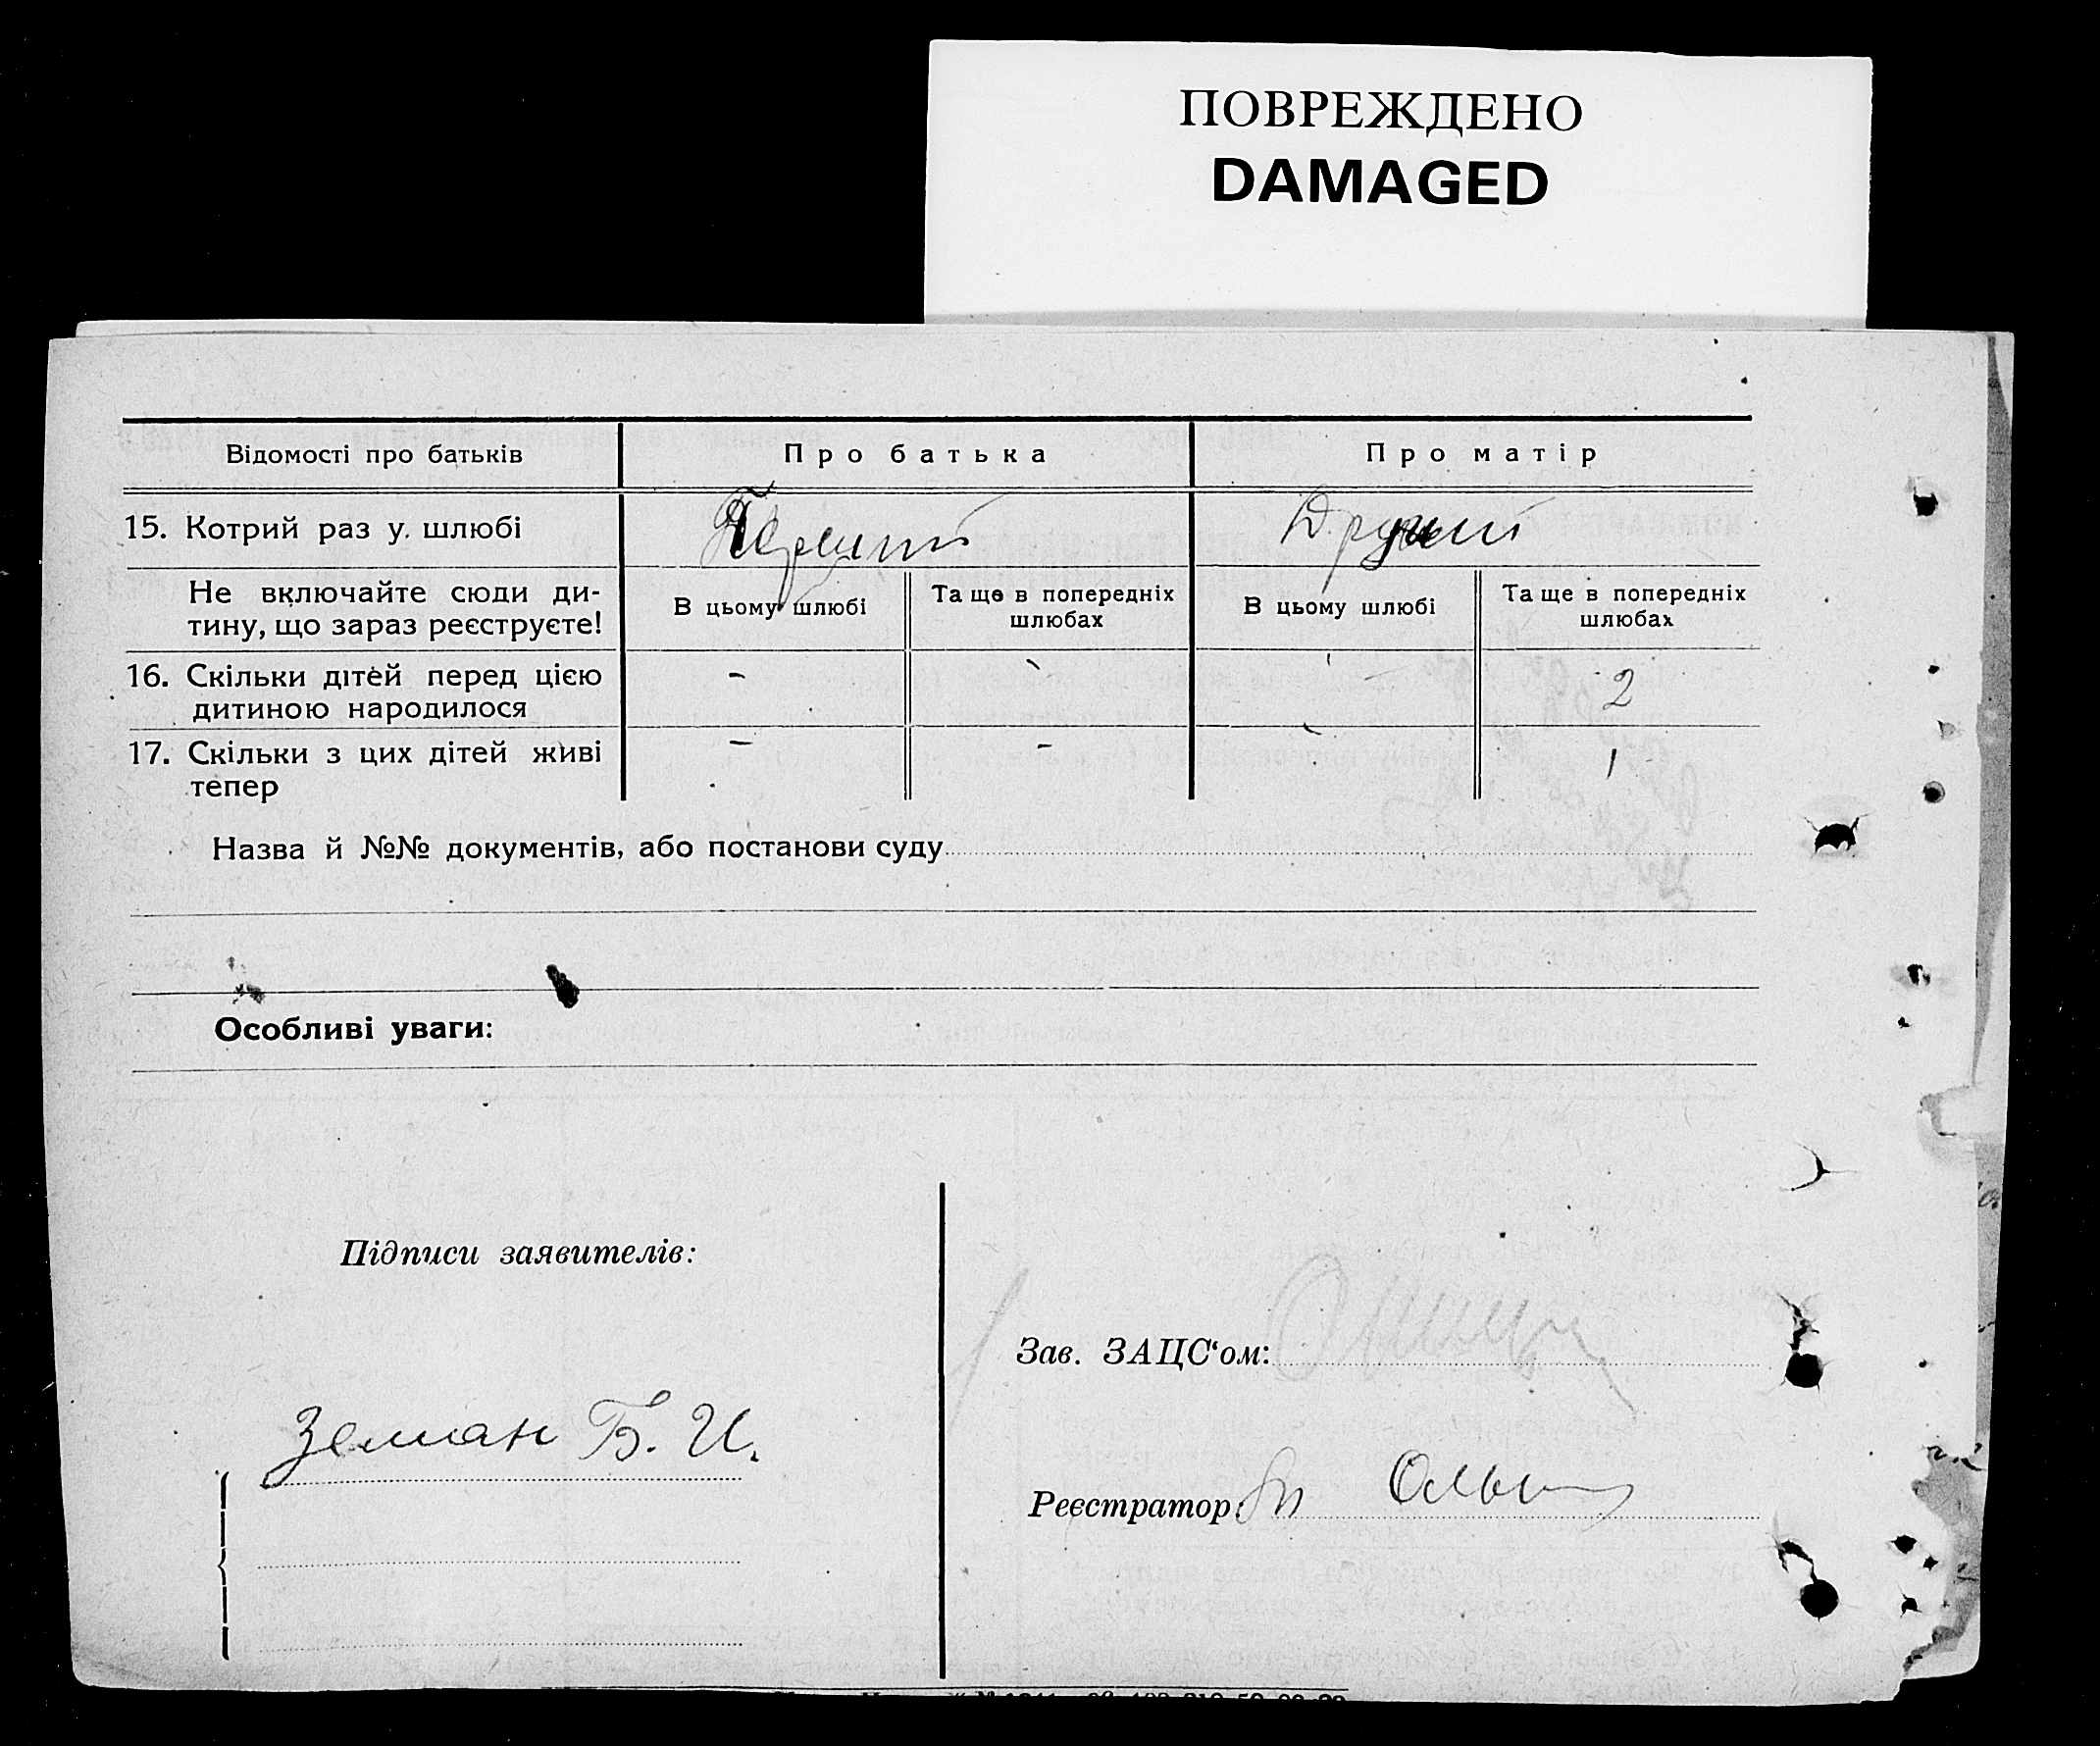 ПОВРЕЖДЕНО
DAMAGED
Відомості про батьків
Про батька
Про матір
15. Котрий раз у. шлюбі
Перший
Другий
Не включайте сюди ди-
тину, що зараз реєструєте!
В цьому шлюбі
Та ще в попередніх
шлюбах
В цьому шлюбі
Та ще в попередніх
шлюбах
16. Скільки дітей перед цією
дитиною народилося
-
-
-
2
17. Скільки з цих дітей живі
тепер
-
-
-
1
Назва й №№ документів, або постанови суду
Особливі уваги:
Підписи заявителів:
Зав. ЗАЦС‘ом:
Земман Б. И.
Реєстратор: